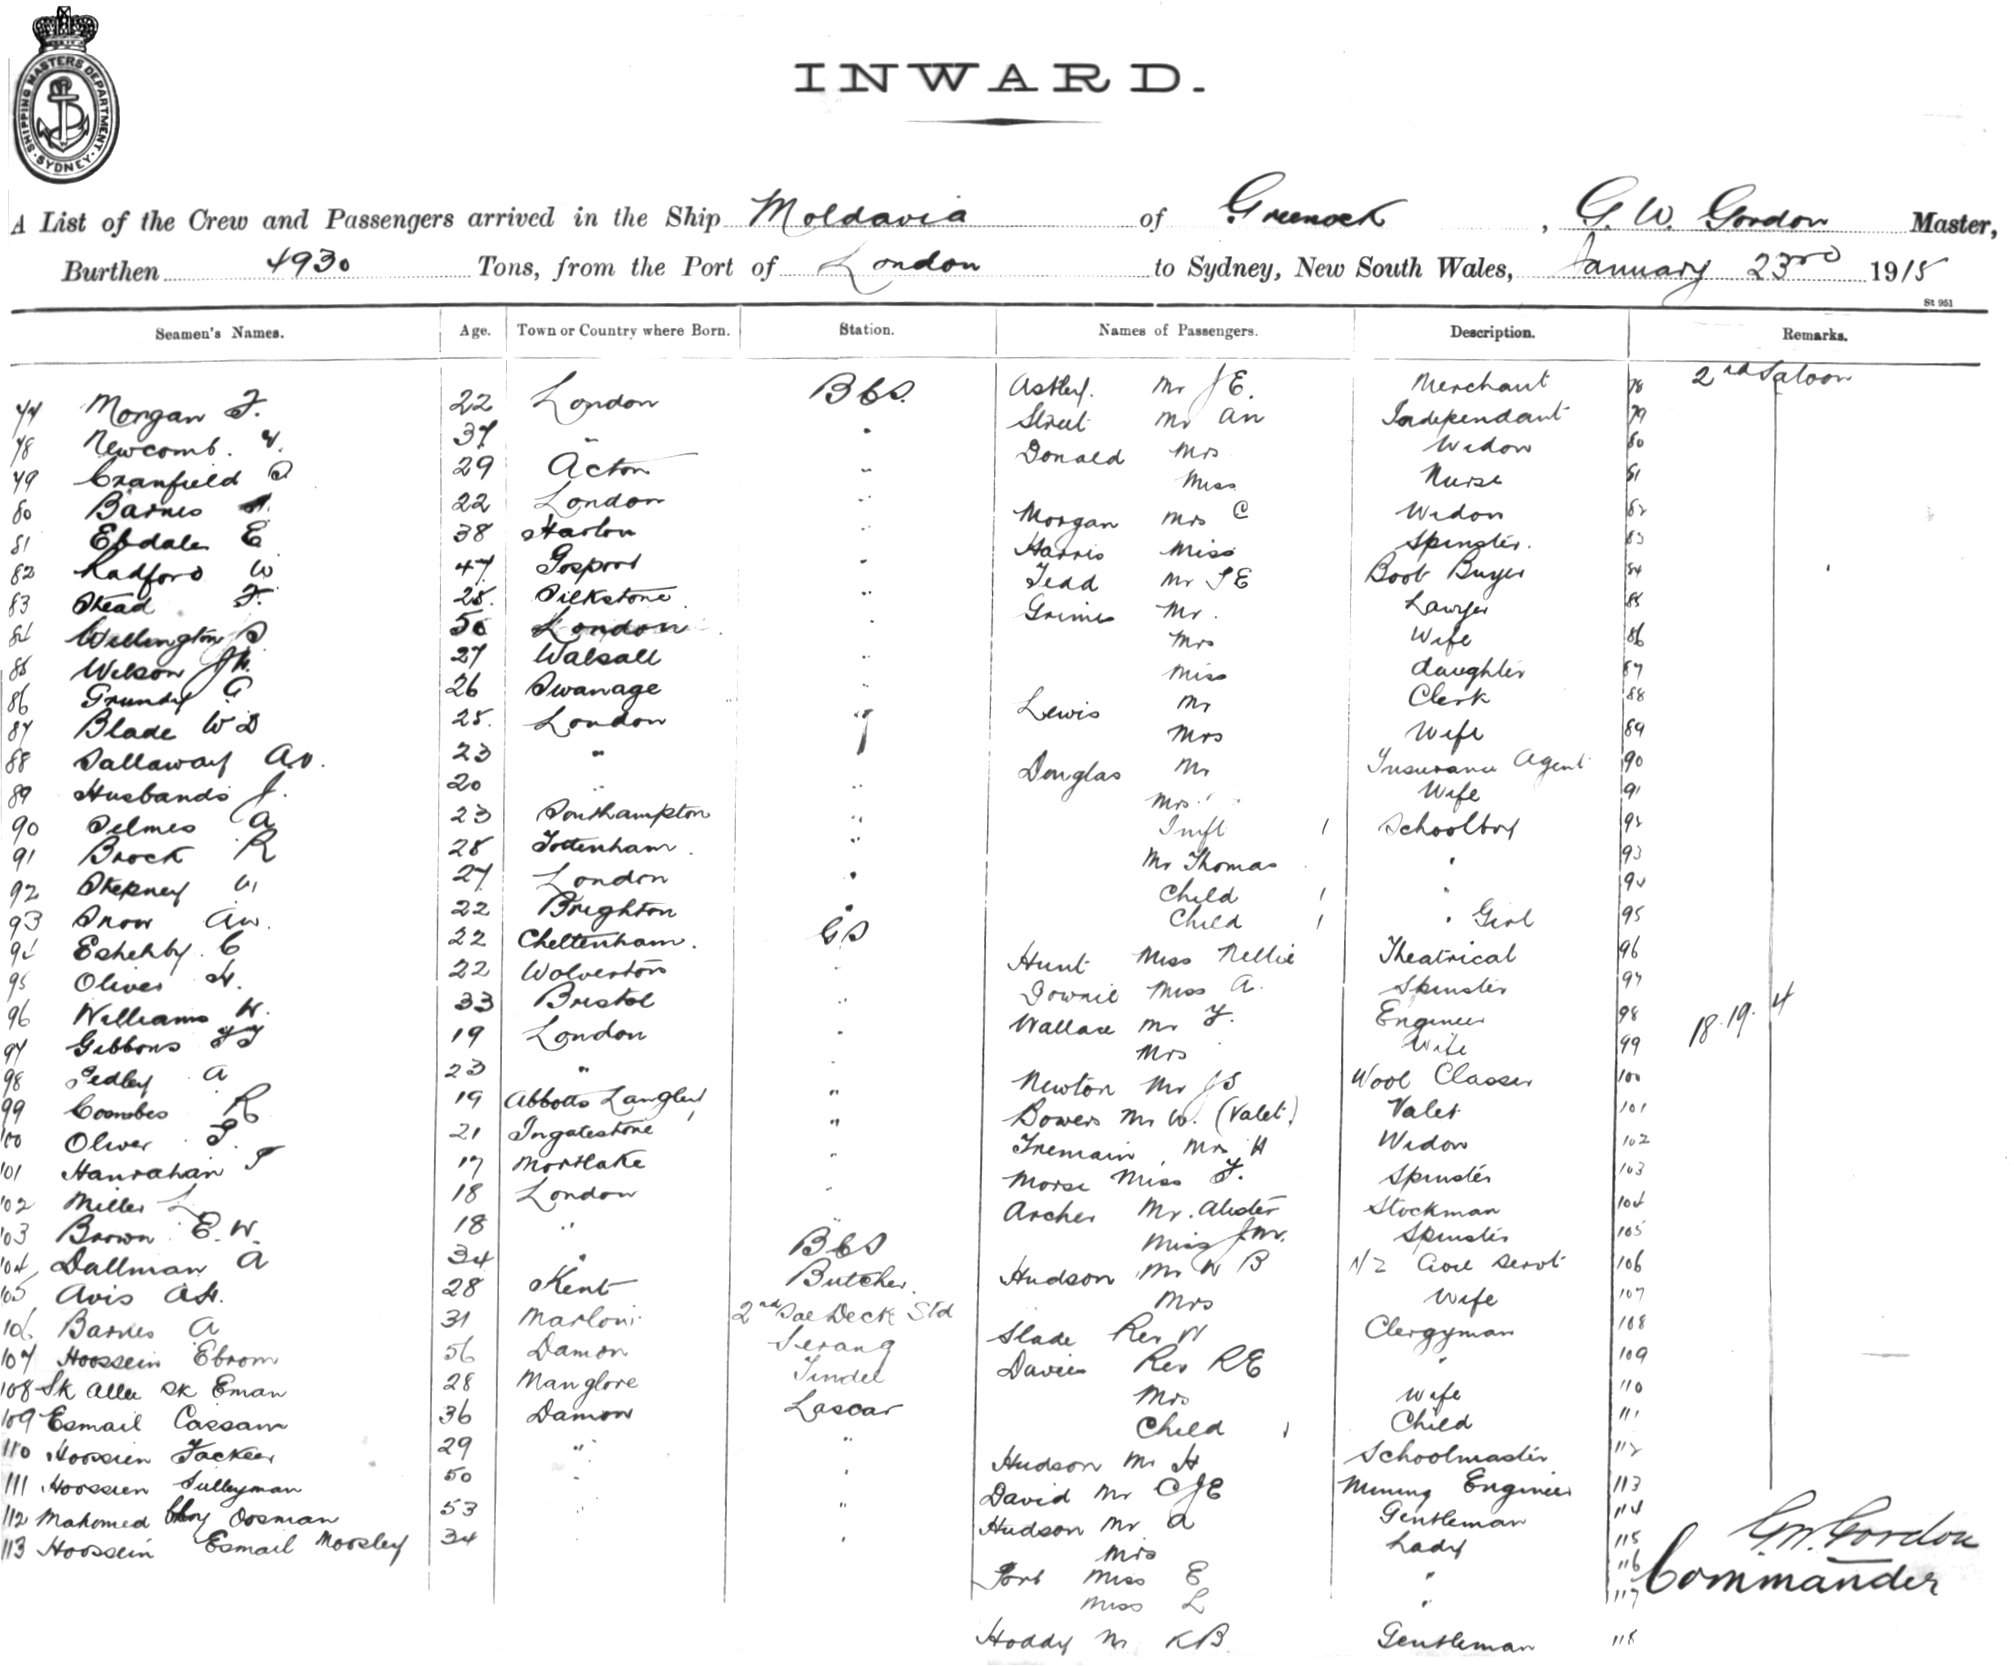 SHIPPING MASTERS DEPARTMENT. SYDNEY.
INWARD.
A List of the Crew and Passengers arrived in the Ship Moldavia of Greenock, G. W. Gordon Master,
Burthen 4930 Tons, from the Port of London to Sydney, New South Wales, January 23rd 1915
St 951
Seamen's Names. Age. Town or Country where Born. Station. Names of Passengers. Description. Remarks.
77 Morgan F. 22 London B G S. Astley. Mr J E. Merchant 78 2nd Saloon
78 Newcomb. 37 " " Street Mr An Independant 79
79 Cranfield 29 Acton " Donald Mrs Widow 80
80 Barnes 22 London " Miss Nurse 81
81 Ebdale E 38 Harlow " Morgan Mrs C Widow 82
82 Radford W 47 Gosport " Harris Miss Spinster. 83
83 Stead F. 25. Silkstone " Tedd Mr S E Boot Buyer 84
84 Willington S 50 London " Grimes Mr. Lawyer 85
85 Wilson 27 Walsall " Mrs Wife 86
86 Grundy G 26 Swanage " Miss daughter 87
87 Blade W D 25. London " Lewis Mr Clerk 88
88 Sallaway 23 " Mrs Wife 89
89 Husbands J. 20 " " Douglas Mr Insurance Agent 90
90 Selmes A 23 Southampton " Mrs Wife 91
91 Brock R 28 Tottenham. " Inft 1 Schoolboy 92
92 Stepney 27 London " Mr Thomas " 93
93 Snow AW. 22 Brighton " Child 1 " 94
94 C 22 Cheltenham. G S Child 1 " Girl 95
95 Oliver H. 22 Wolverton " Hunt Miss Nellie Theatrical 96
96 Williams W. 33 Bristol " Downie Miss A. Spinster 97
97 Gibbons 19 London " Wallace Mr F. Engineer 98 18.19.4
98 Sedley A 23 " " Mrs Wife 99
99 Coombes R 19 Abbotts Langley " Newton Mr J S Wool Classer 100
100 Oliver 21 Ingatestone " Bowers Mr W. (Valet) Valet 101
101 Hanrahan T 17 Mortlake " Tremain Mrs H Widow 102
102 Miller L 18 London " Morse Miss F. Spinster 103
103 Brown E. W. 18 " " Archer Mr. Alister Stockman 104
104 Dallman A 34 " B G S Miss J M. Spinster 105
105 Avis AH. 28 Kent Butcher. Hudson Mr W B NZ Civil Servt 106
106 Barnes A 31 2nd Sal Deck Std Mrs Wife 107
107 Hoossein Ebrom 56 Damon Serang Slade Rev W Clergyman 108
108 Sk Allee Sk Eman 28 Manglore Tindel Davies Rev R E " 109
109 Esmail Cassam 36 Damon Lascar Mrs Wife 110
110 Hoossien Fackeer 29 " " Child 1 Child 111
111 Hoossien Sulleyman 50 " " Hudson Mr H Schoolmaster 112
112 Mahomed Oosman 53 " " David Mr C J E Mining Engineer 113
113 Hoossein Esmail Moosley 34 " " Hudson Mr A Gentleman 114
Mrs Lady 115
Miss E " 116
Miss L " 117
Hoddy Mr K B Gentleman 118
G. W. Gordon
Commander